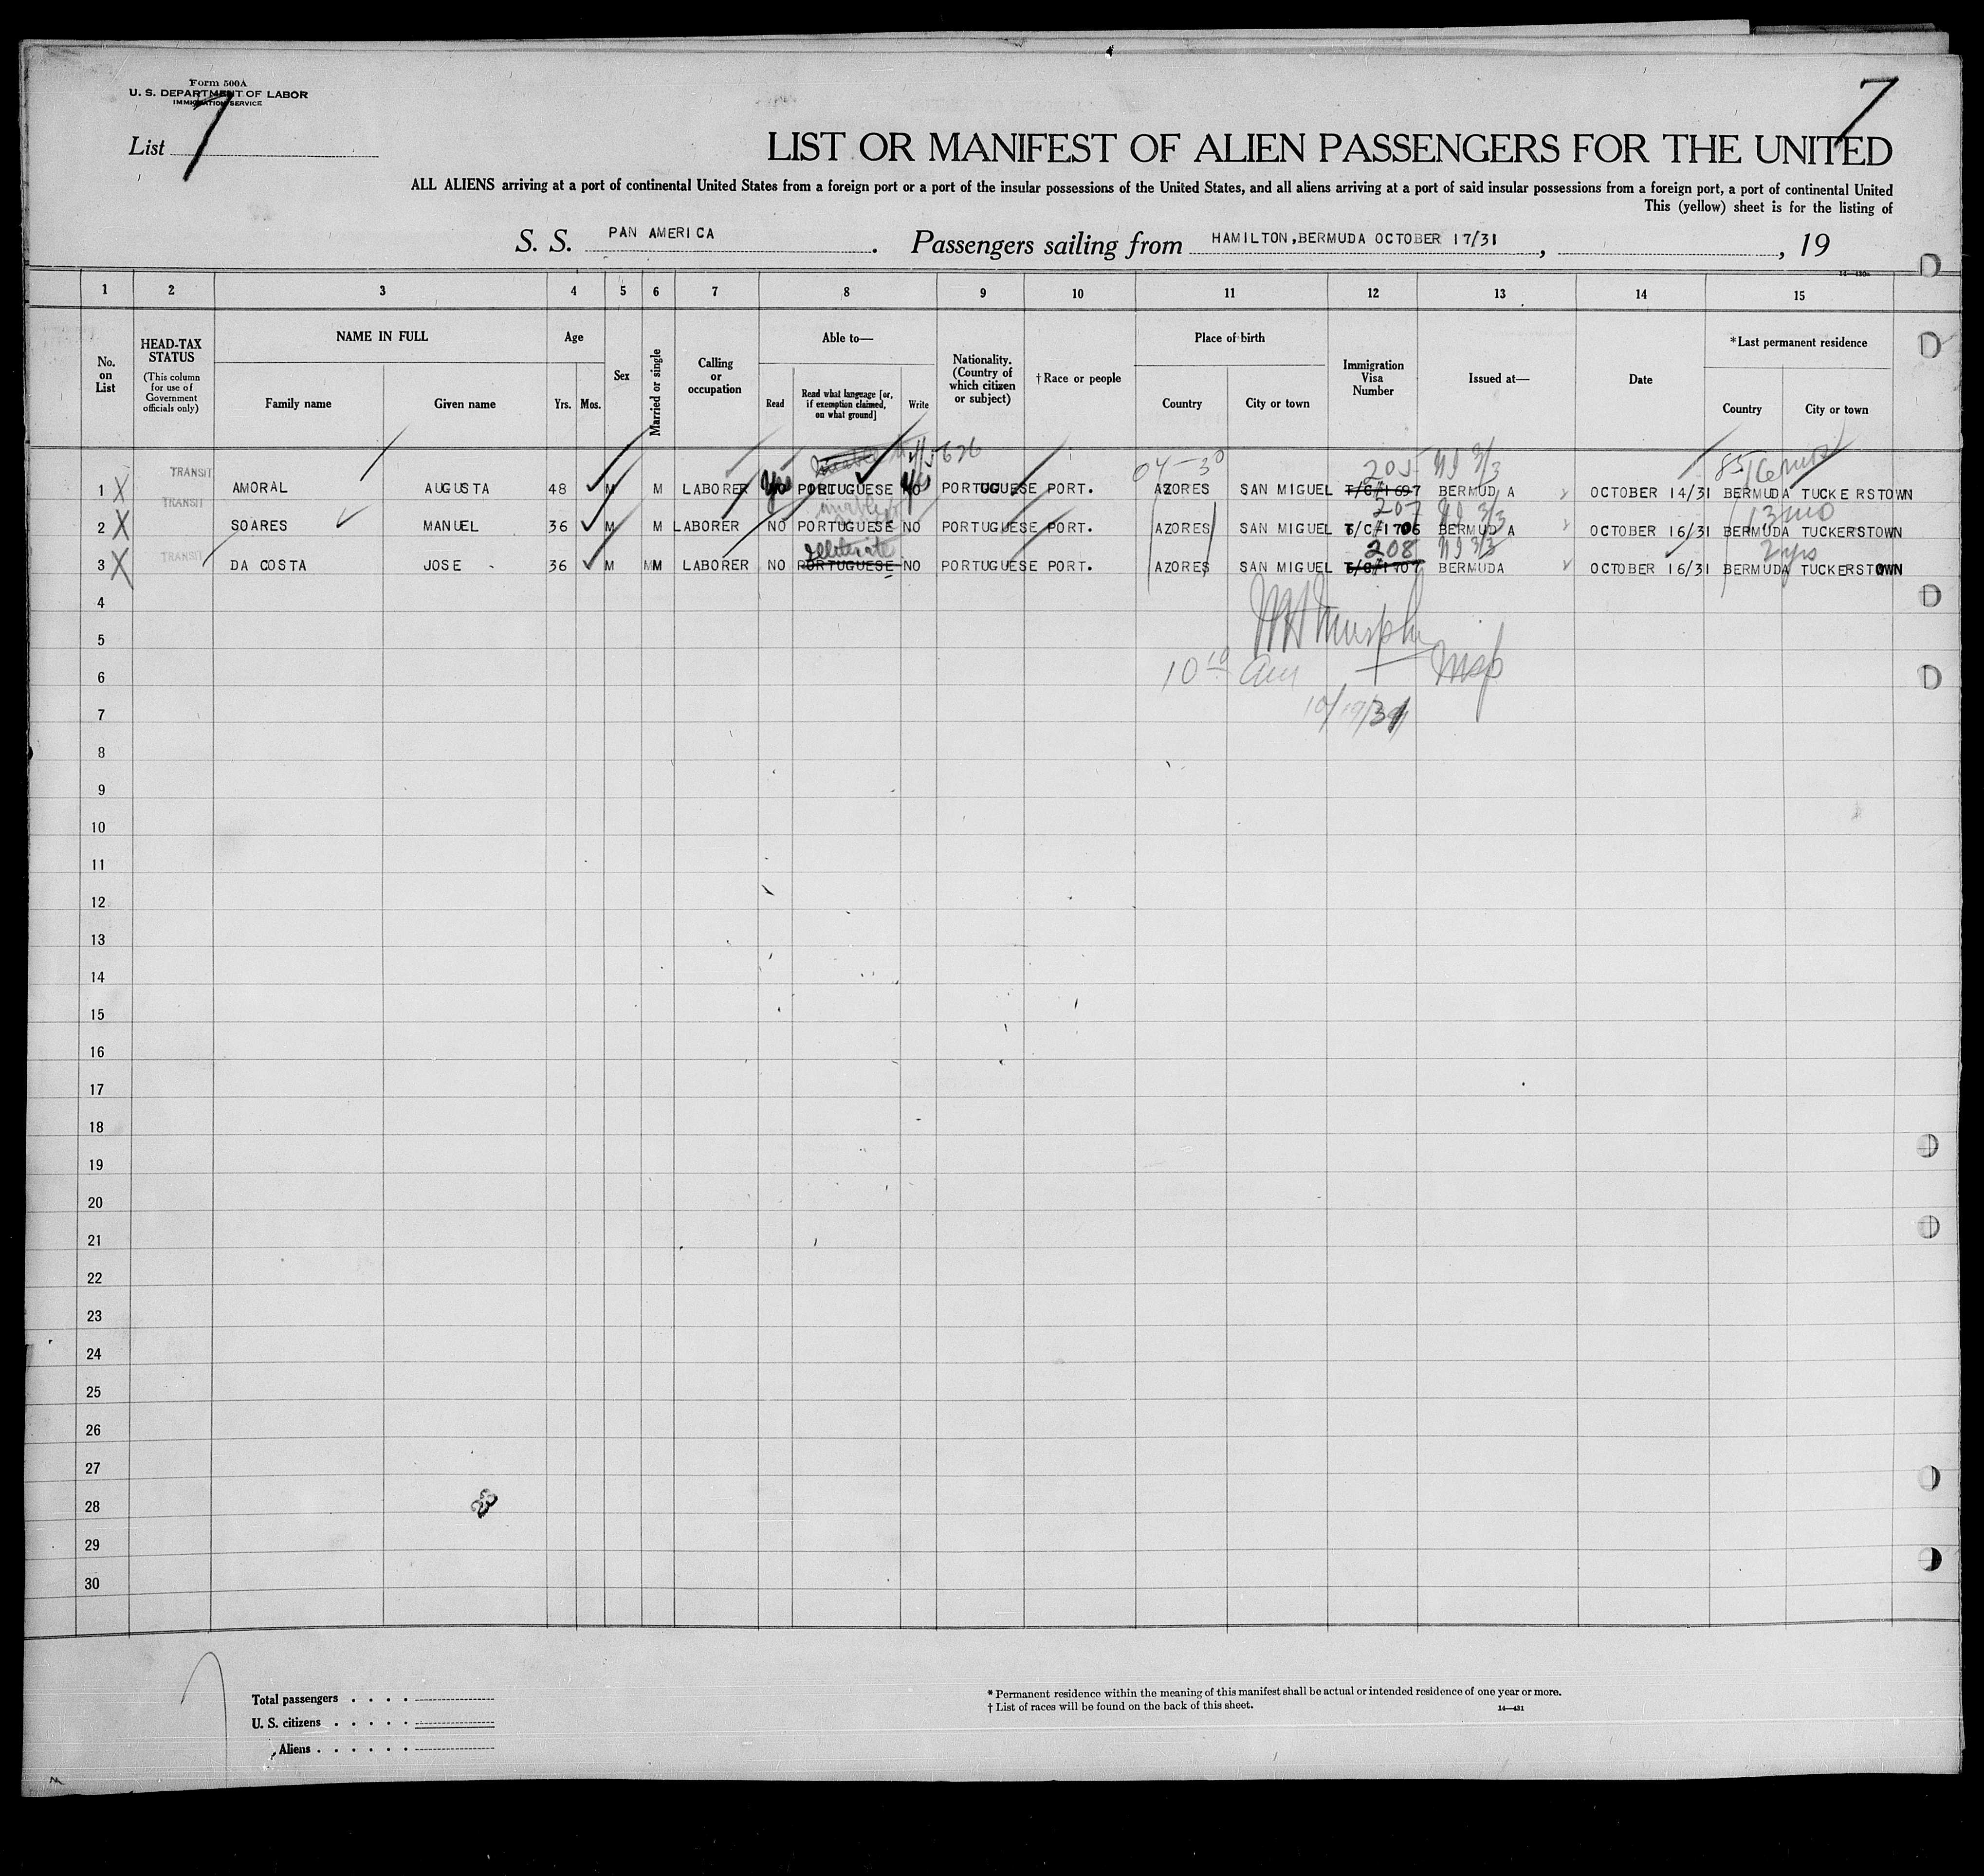 Form 500A
U. S. DEPARTMENT OF LABOR
IMMIGRATION SERVICE
7
List 7
LIST OR MANIFEST OF ALIEN PASSENGERS FOR THE UNITED
ALL ALIENS arriving at a port of continental United States from a foreign port or a port of the insular possessions of the United States, and all aliens arriving at a port of said insular possessions from a foreign port, a port of continental United
This (yellow) sheet is for the listing of
S. S. PAN AMERICA. Passengers sailing from HAMILTON,BERMUDA OCTOBER 17/31, , 19
1 2 3 4 5 6 7 8 9 10 11 12 13 14 15
No. on List
HEAD-TAX STATUS
(This column for use of Government officials only)
NAME IN FULL
Family name
Given name
Age
Yrs. Mos.
Sex
Married or single
Calling or occupation
Able to—
Read
Read what language [or, if exemption claimed, on what ground]
Write
Nationality. (Country of which citizen or subject)
† Race or people
Place of birth
Country
City or town
Immigration Visa Number
Issued at—
Date
*Last permanent residence
Country
City or town
04-30 205
1 X TRANSIT AMORAL AUGUSTA 48 M M LABORER Yes PORTUGUESE NO PORTUGUESE PORT. AZORES SAN MIGUEL T/C/1697 BERMUDA OCTOBER 14/31 BERMUDA TUCKERSTOWN
207 13 mo
2 X TRANSIT SOARES MANUEL 36 M M LABORER NO PORTUGUESE NO PORTUGUESE PORT. AZORES SAN MIGUEL T/C/1706 BERMUDA OCTOBER 16/31 BERMUDA TUCKERSTOWN
illiterate 208 2 yrs
3 X TRANSIT DA COSTA JOSE 36 M M LABORER NO PORTUGUESE NO PORTUGUESE PORT. AZORES SAN MIGUEL T/C/1707 BERMUDA OCTOBER 16/31 BERMUDA TUCKERSTOWN
4
5
Murphy
6 10 10 am Insp
7 10/19/31
8
9
10
11
12
13
14
15
16
17
18
19
20
21
22
23
24
25
26
27
28
29
30
Total passengers . . . .
U. S. citizens . . . . .
Aliens . . . . . .
* Permanent residence within the meaning of this manifest shall be actual or intended residence of one year or more.
† List of races will be found on the back of this sheet.
14—431